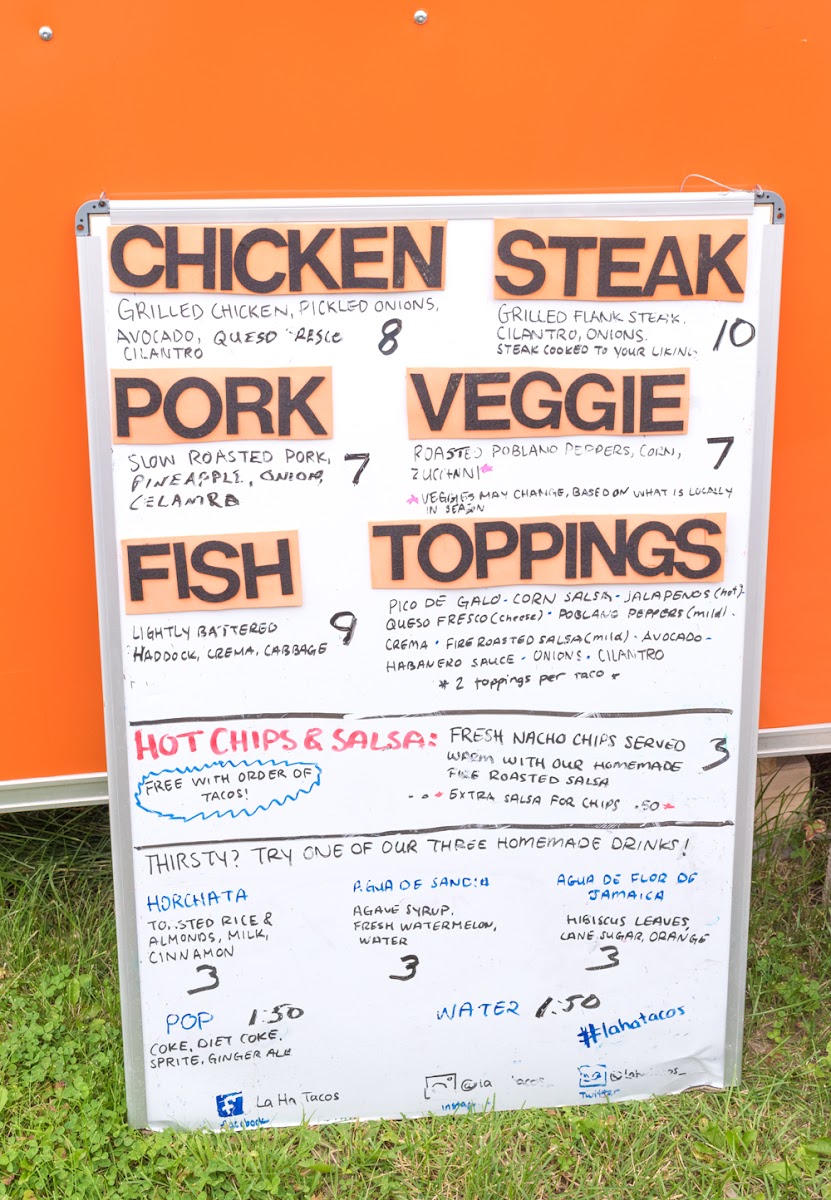 CHICKEN
GRILLED CHICKEN, PICKLED ONIONS,
AVOCADO, QUESO RESCO
CILANTRO
8
STEAK
GRILLED FLANK STEAK,
CILANTRO, ONIONS.
STEAK COOKED TO YOUR LIKING
10
PORK
SLOW ROASTED PORK,
PINEAPPLE, ONION,
CELANTRO
7
VEGGIE
ROASTED POBLANO PEPPERS, CORN,
*
7
* VEGGIES MAY CHANGE, BASED ON WHAT IS LOCALLY
IN SEASON
FISH
LIGHTLY BATTERED
HADDOCK, CREMA, CABBAGE
9
TOPPINGS
PICO DE GALO - CORN SALSA - JALAPENOS (hot) -
QUESO FRESCO (cheese) - POBLANO PEPPERS (mild) -
CREMA - FIRE ROASTED SALSA (mild) - AVOCADO -
HABANERO SAUCE - ONIONS - CILANTRO
* 2 toppings per taco *
HOT CHIPS & SALSA:
FREE WITH ORDER OF
TACOS!
FRESH NACHO CHIPS SERVED
WARM WITH OUR HOMEMADE
FIRE ROASTED SALSA
3
* EXTRA SALSA FOR CHIPS .50 *
THIRSTY? TRY ONE OF OUR THREE HOMEMADE DRINKS!
HORCHATA
TO..STED RICE &
ALMONDS, MILK,
CINNAMON
3
AGUA DE SANDIA
AGAVE SYRUP,
FRESH WATERMELON,
WATER
3
AGUA DE FLOR DE
JAMAICA
HIBISCUS LEAVES,
CANE SUGAR, ORANGE
3
POP 1.50
COKE, DIET COKE,
SPRITE, GINGER ALE
WATER 1.50
#lahatacos
La Ha Tacos
facebook
Twitter